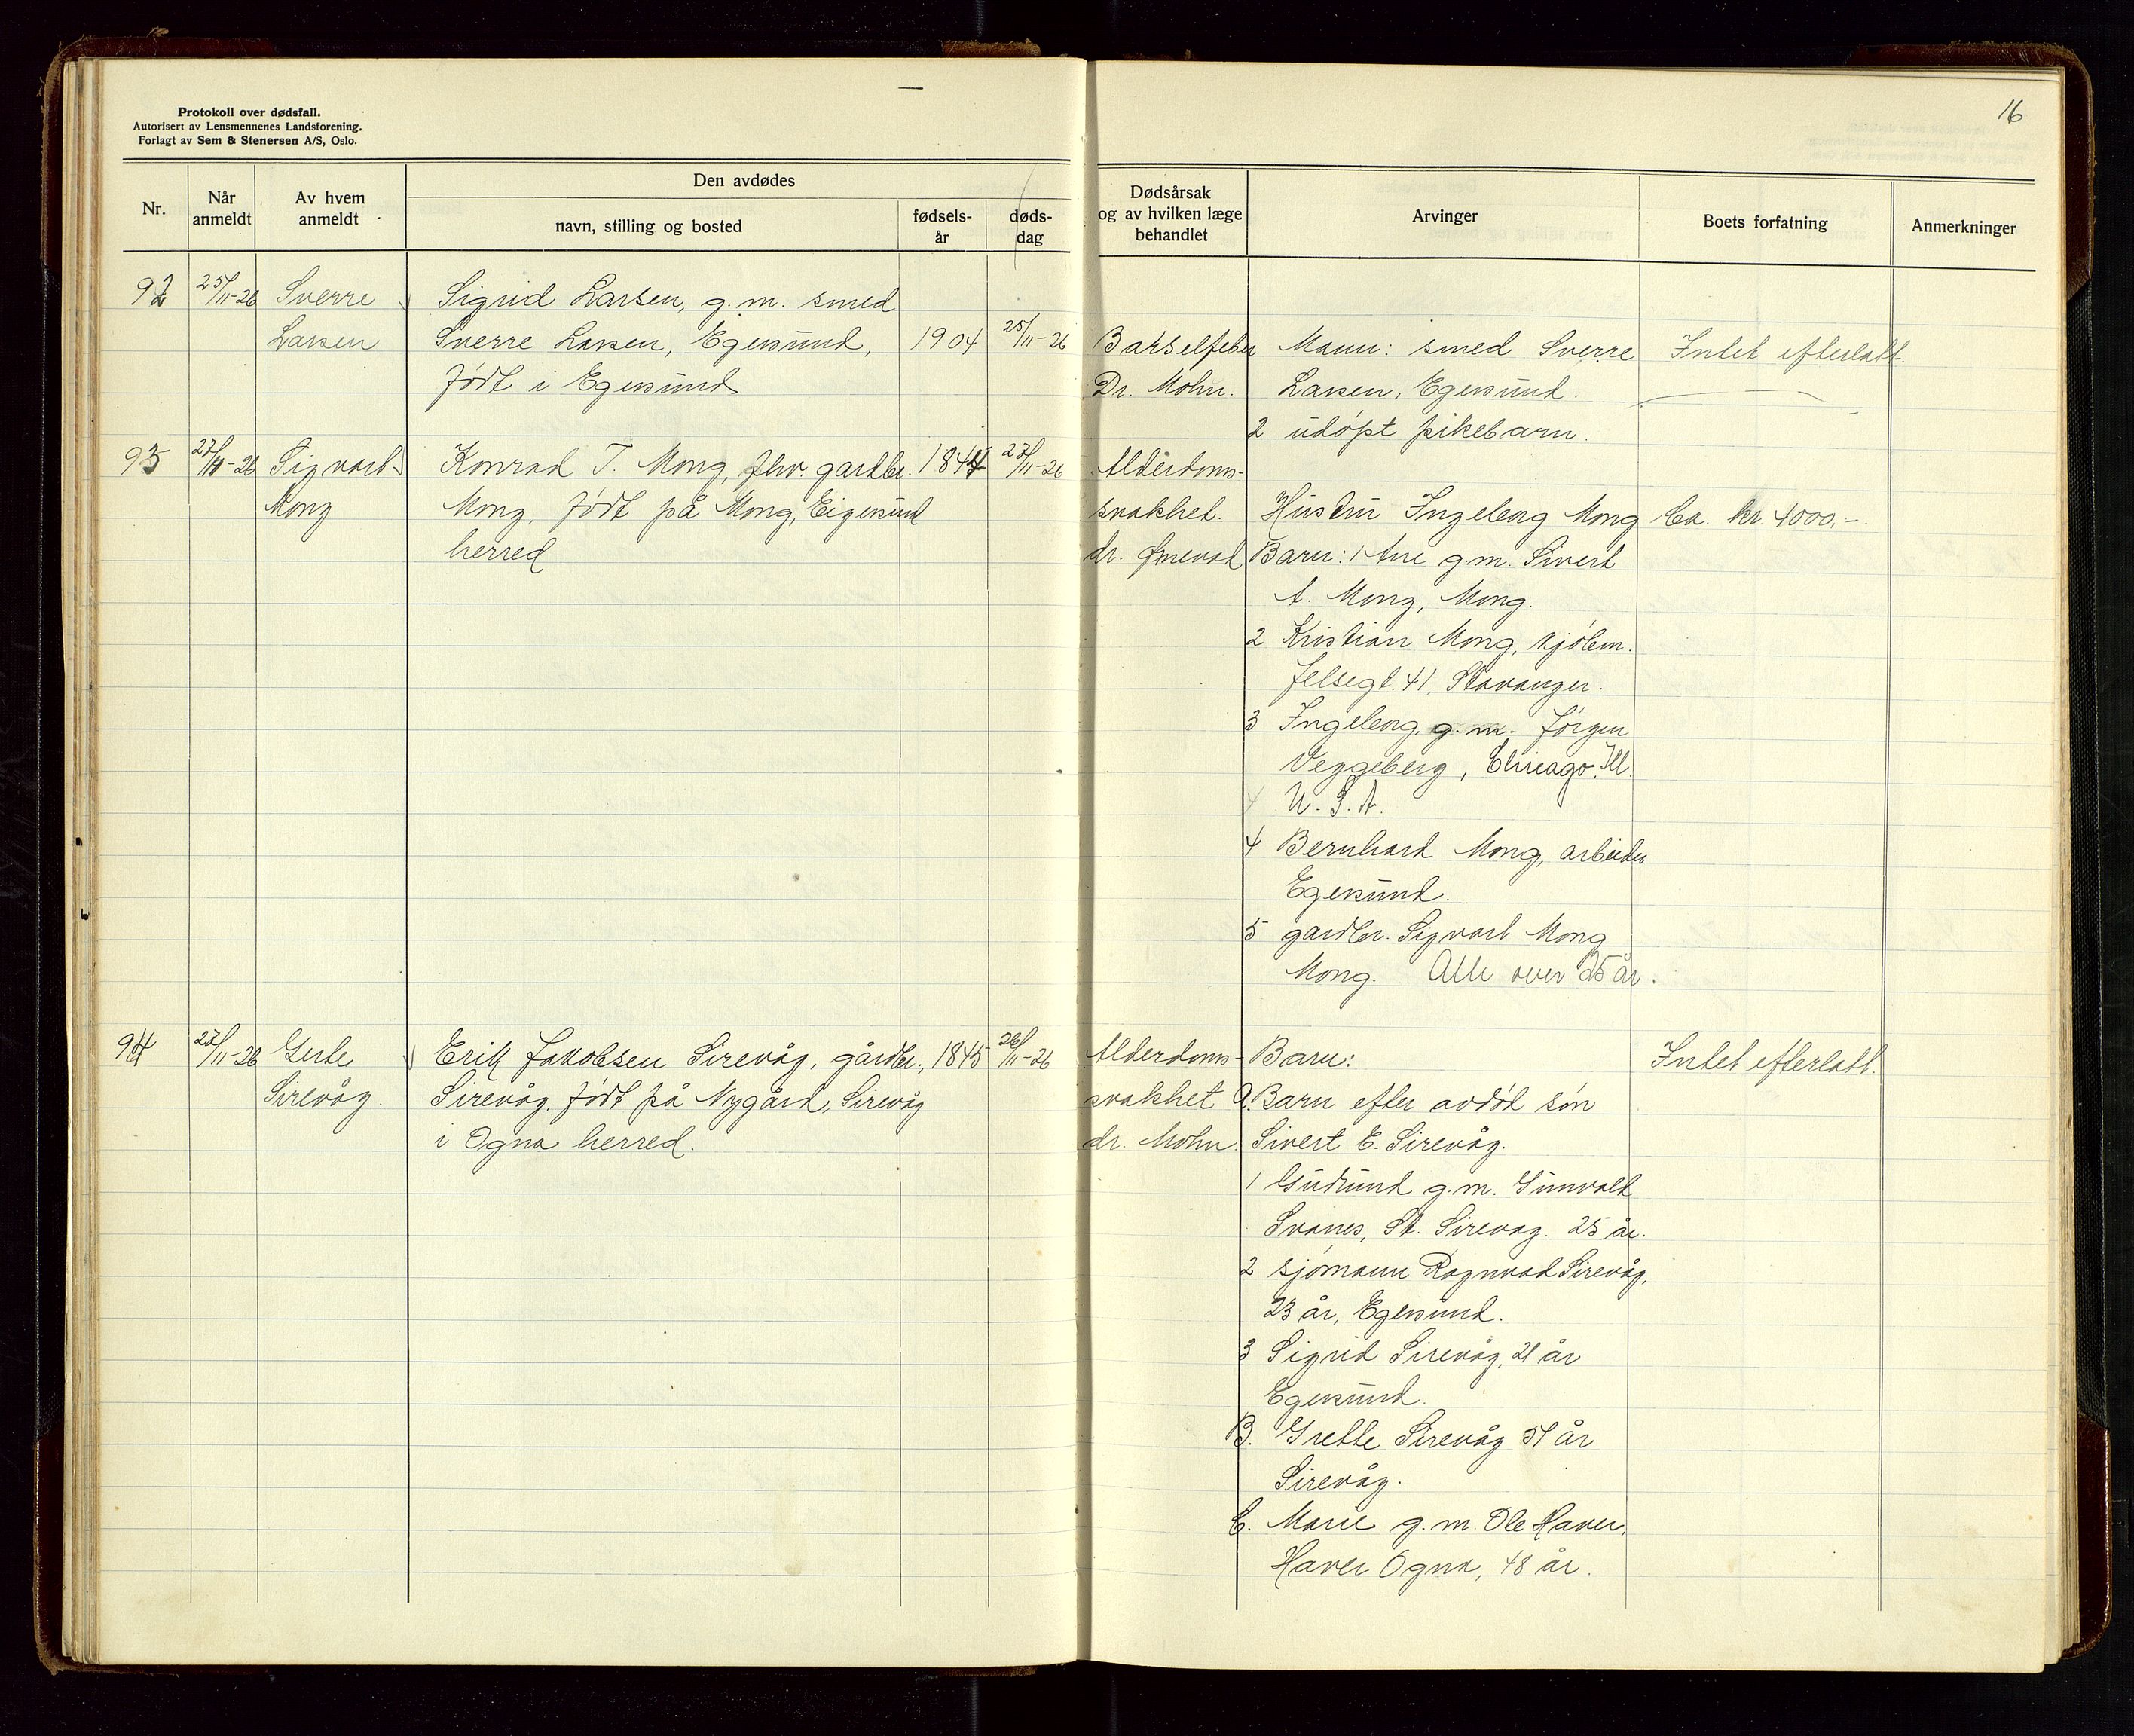 Protokoll over dødsfall.
Autorisert av Lensmennenes Landsforening.
Forlagt av Sem & Stenersen A/S, Oslo.
16
Nr.
Når anmeldt
Av hvem anmeldt
Den avdødes
navn, stilling og bosted
fødsels-år
døds-dag
Dødsårsak og av hvilken læge behandlet
Arvinger
Boets forfatning
Anmerkninger
92
25/11-26
Sverre
Larsen
Sigrid Larsen, g.m. smed
Sverre Larsen, Egersund,
født i Egersund
1904
25/11-26
Barselfeber
Dr. Mohn.
Mann: smed Sverre
Larsen, Egersund.
2 udøpt pikebarn.
Intet efterlatt.
93
27/11-26
Sigvart
Mong
Konrad T. Mong, fhv. gardbr.
Mong, født på Mong, Eigersund
herred
1844
27/11-26
Alderdoms-
svakhet.
dr.
Hustru Ingeborg Mong
Barn: 1 Ane g.m. Sivert
A. Mong, Mong.
2 Kristian Mong, kjøbm.
Jelsegt. 41, Stavanger.
3 Ingeborg, g.m. Jörgen
Veggeberg, Chicago, Ill.
U.S.A.
4 Bernhard Mong, arbeider
Egersund.
5 gardbr. Sigvart Mong
Mong. Alle over 25 år.
Ca. kr. 4000,-.
94
27/11-26
Gerte
Sirevåg.
Erik Jakobsen Sirevåg, gårdbr.,
Sirevåg, født på Nygård, Sirevåg
i Ogna herred.
1845
26/11-26
Alderdoms-
svakhet
dr. Mohn.
Barn:
A. Barn efter avdød søn
Sivert E. Sirevåg.
1 Gudrund g.m. Gunvald
Svanes, St. Sirevåg. 25 år.
2 sjømann Ragnvad Sirevåg,
23 år, Egersund.
3 Sigrid Sirevåg, 21 år
Egersund.
B. Grette Sirevåg 51 år
Sirevåg.
C. Marie g.m. Ole Haver,
Haver Ogna, 48 år.
Intet efterlatt.